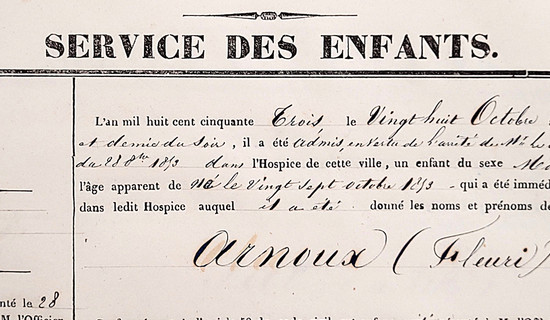 SERVICE DES ENFANTS.
L'an mil huit cent cinquante Trois le Vingt huit Octobre
et demie du soir, il a été admis, en vertu de l'arrêté de Mr le
du 28 8bre 1853 dans l'Hospice de cette ville, un enfant du sexe
l'âge apparent de né le Vingt sept octobre 1853 - qui a été imméd
dans ledit Hospice auquel il a été donné les noms et prénoms de
Arnoux (Fleuri)
nté le 28
M. l'Officier